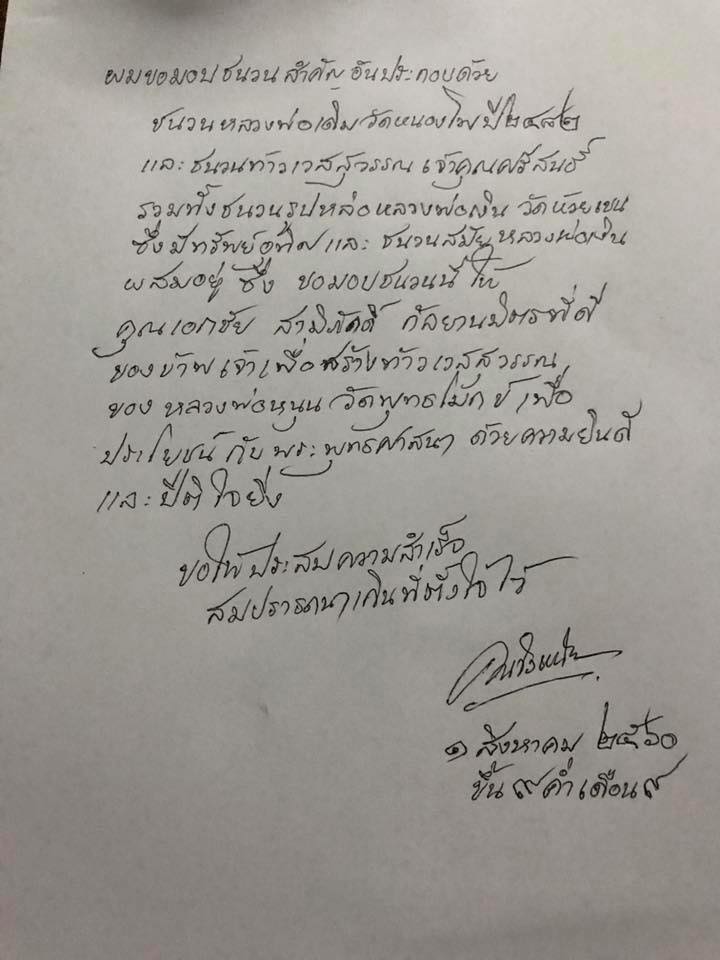 ผมขอมอบชนวนสำคัญ อันประกอบด้วย
ชนวนหลวงพ่อเดิม วัดหนองโพ ปี ๒๔๘๒
และชนวนท้าวเวสสุวรรณ เจ้าคุณศรีสนธิ์
รวมทั้งชนวนรูปหล่อหลวงพ่อเงิน วัดห้วยเขน
ซึ่งมีทรัพย์อุทิศและ ชนวนสมัยหลวงพ่อเงิน
ผสมอยู่ ซึ่ง ขอมอบชนวนนี้ ให้
คุณเอกชัย สามิภักดิ์ กัลยาณมิตรที่ดี
ของข้าพเจ้าเพื่อสร้างท้าวเวสสุวรรณ
ของ หลวงพ่อหนุน วัดพุทธโมกข์ เพื่อ
ประโยชน์ กับ พระพุทธศาสนา ด้วยความยินดี
และปีติใจยิ่ง
ขอให้ประสบความสำเร็จ
สมปรารถนาเกินที่ตั้งใจไว้
๑ สิงหาคม ๒๕๖๐
ขึ้น ๙ ค่ำ เดือน ๙